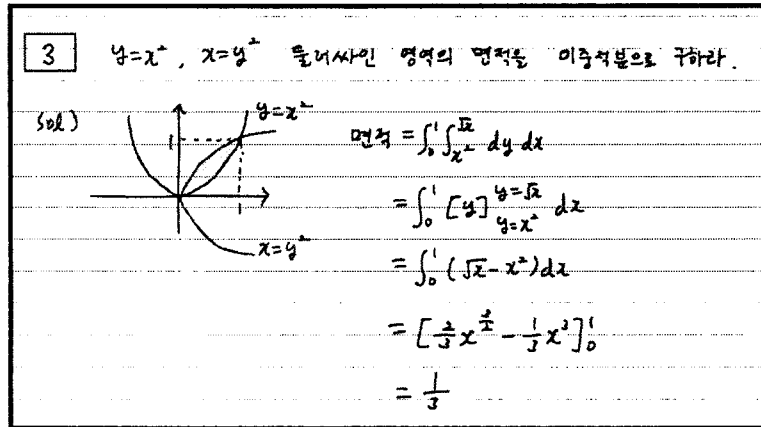 3 y=x², x=y² 둘러싸인 영역의 면적을 이중적분으로 구하라.
sol)
y=x²
1
1
x=y²
면적 = ∫₀¹ ∫_{x²}^{√x} dy dx
= ∫₀¹ [y]_{y=x²}^{y=√x} dx
= ∫₀¹ (√x - x²) dx
= [2/3 x^{3/2} - 1/3 x³]₀¹
= 1/3